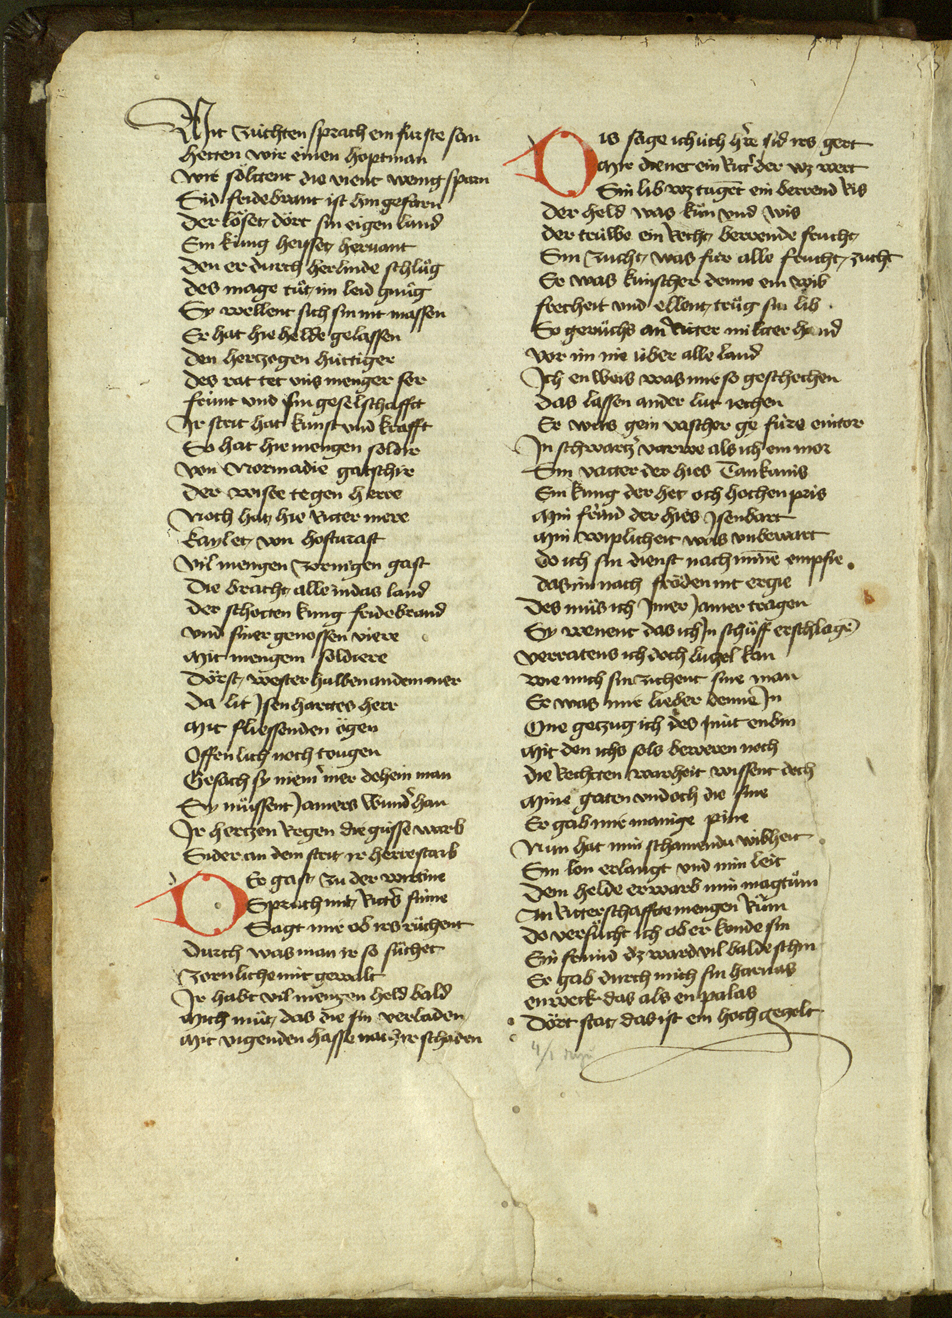 Mit züchten sprach ein fürste san
Hetten wir einen hoptman
Wir söltent die vient wenig span
Sid fridebrant ist hin gefarn
Der löset dört sin eigen land
Ein küng heisset hernant
Den er durch herlinde schlüg
des mage tüt im leid gnüg
Sy wellent sich sin nit massen
Er hat hie helde gelassen
den hertzogen hüttiger
des rat tet uns menger ser
frünt und sin geselschafft
Ir strit hat kunst und krafft
So hat hie mengen soldir
von Normadie gatschir
Der wise tegen herre
Noch hat hie Ritter mere
kaylet von hosturast
vil mengen zornigen gast
Die bracht alle in das land
der schotten kung fridebrand
und siner genossen viere
Mit mengem soldiere
Dörst wester halben an dem mer
Da lit Isenhartes herr
Mit fliessenden ögen
Offenlich noch tougen
Gesach sy niem̄ mer dehein man
Sy müssent Jamers wund̄ han
Ir hertzen Regen die güsse warb
Sider an dem strit ir herre starb
Der gast zu der wirtine
Sprach mit Ritt̄s sinne
Sagt mir ob irs rüchent
durch was man ir so süchet
Zornliche mit gewalt
Ir habt vil mengen held bald
Mich müt das die sin verladen
Mit vigenden hasse nach ir schaden
Das sage ich üch hr̄e sid irs gert
Mir dienet ein Ritt̄ der wz wert
Sin lib wz tugēt ein berend Ris
der held was kün und wis
der trüwe ein Recht berende frucht
Sin zucht was für alle frucht zucht
Er was künscher denne ein wib
frecheit und ellent trüg sin lib
So gewüchs an Ritter milter hand
vor im nie über alle land
Ich en weis was mir so geschechen
das lassen ander lüt iechen
Er was gein valscher ge füre ein tor
In schwartz̄ varwe als ich ein mor
Sin vatter der hies Tankanis
Ein kung der het och hochen pris
Min fründ der hies Isenhart
Min wiplicheit was unbewart
do ich sin dienst nach mīne empfie
das im nach fröden nit ergie
Des müs ich imer Jamer tragen
Sy wenent das ich In schüff erschlagē
verratens ich doch lützel kan
wie mich sin zichent sine man
Er was mir lieber denne In
One getzug ich des nüt en bin
Mit den ichs sols beweren noch
die Rechten warheit wissent doch
Mine gaten und och die sine
Er gab mir manige pine
Nun hat min schamendu wibheit
Sin lon erlangt und min leit
Dem helde erwarb min magtüm
In Ritterschafft mengen Rüm
do versucht ich ob er konde sin
Ein fründ dz ward vil balde schin
Er gab durch mich sin harnas
enweck das als en palas
Dört stat das ist ein hoch gezelt